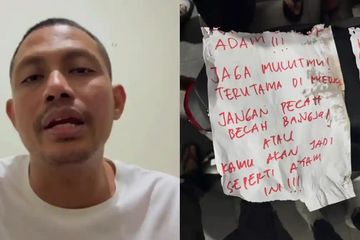 ADAM !!!
JAGA MULUTMU!
TERUTAMA DI
JANGAN PECAH
BECAH BANGSA!
ATAU
KAMU AKAN JADI
SEPERTI AYAM
INI !!!